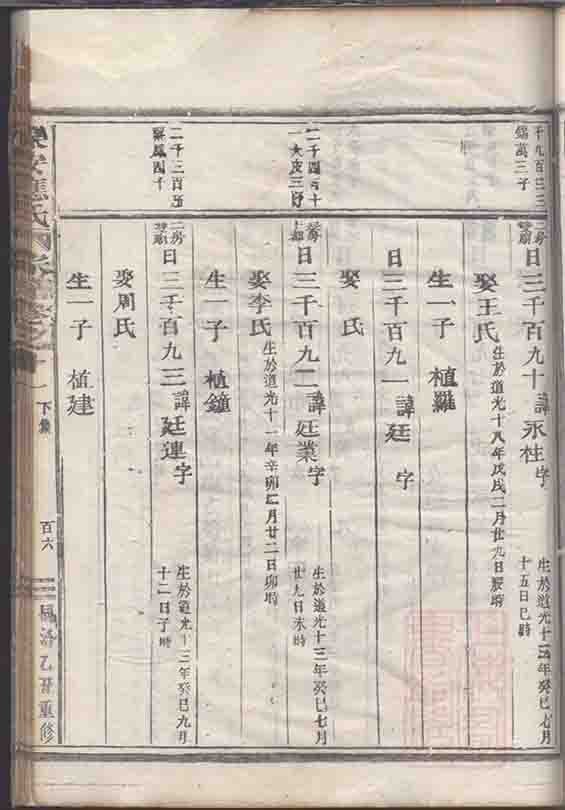 千九百
錫萬三子
二房
日三千百九十諱永柱字
生於道光十三年癸巳七月
十五日巳時
娶王氏
生於道光十八年戊戌二月廿九日辰時
生一子 植羅
日三千百九一諱廷 字
娶 氏
二千四百十
一大成三子
日三千百九二諱廷業字
生於道光十三年癸巳七月
廿九日未時
娶李氏
生於道光十一年辛卯二月廿二日卯時
生一子 植鐘
二千三百
二房
日三千百九三諱廷連字
生於道光十三年癸巳九月
十二日子時
娶周氏
生一子 植建
下集
百六
乙丑重修